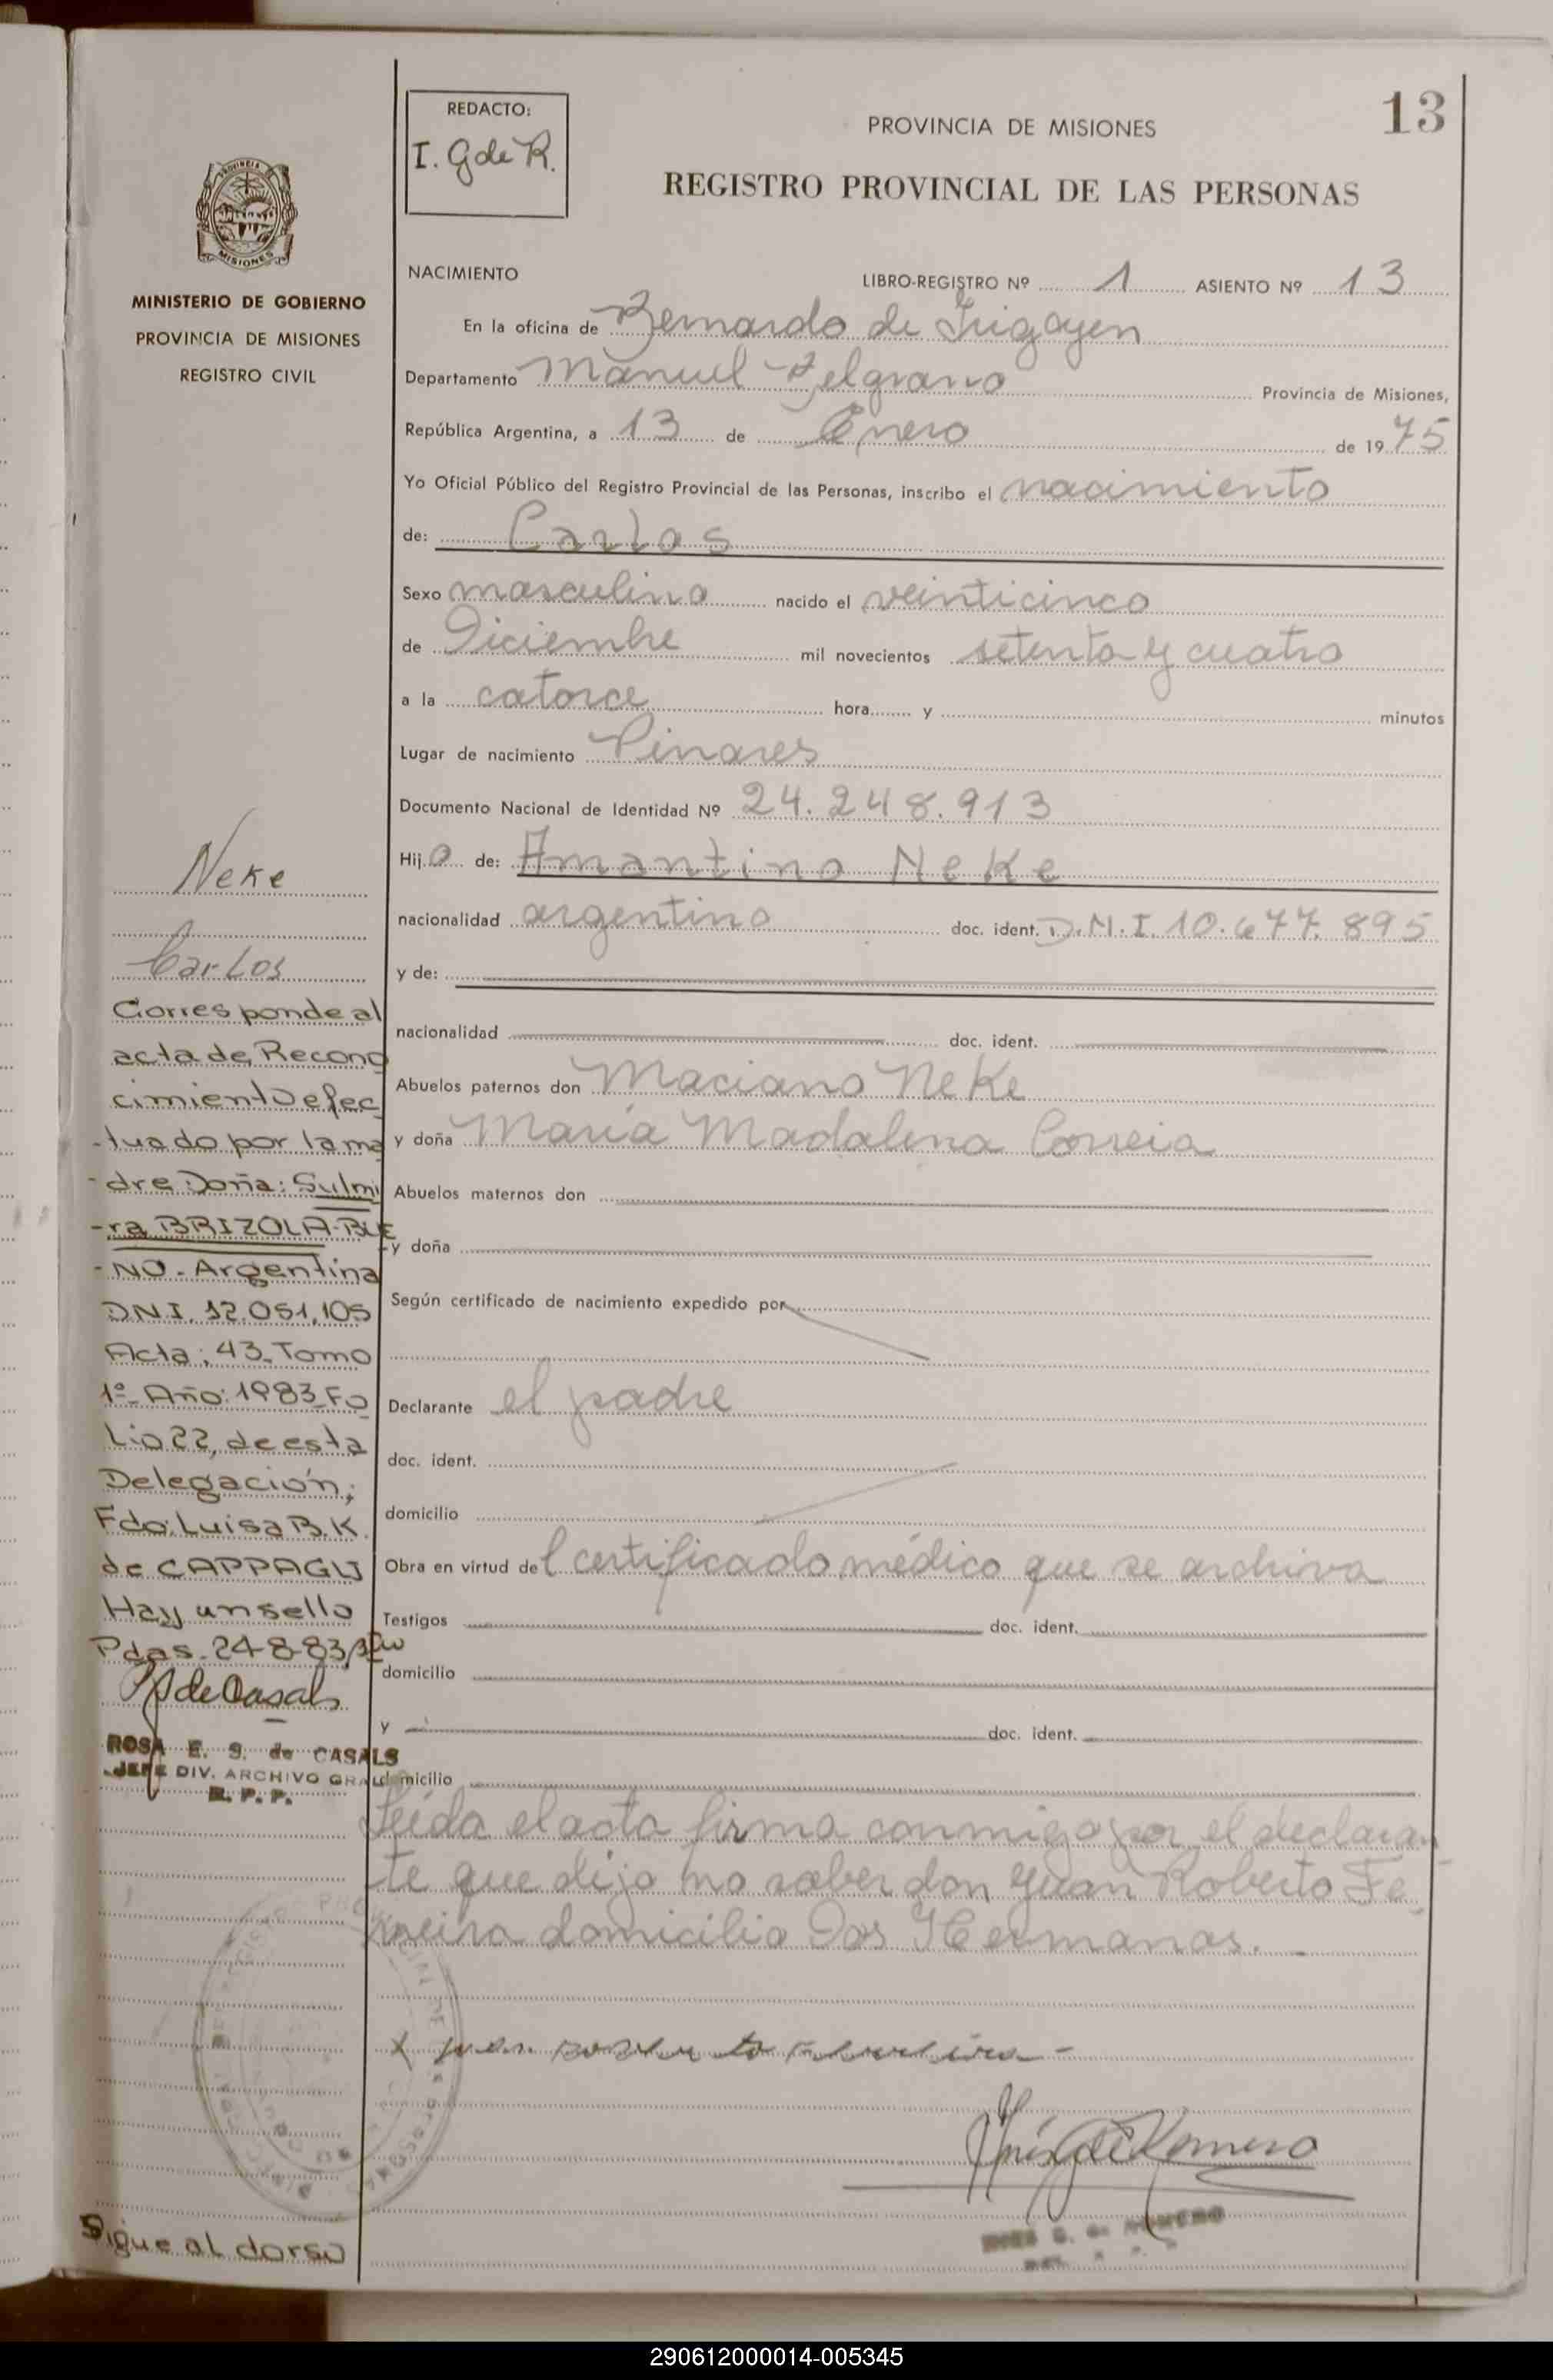 13
REDACTO:
I. G de R.
PROVINCIA DE MISIONES
REGISTRO PROVINCIAL DE LAS PERSONAS
PROVINCIA
MISIONES
MINISTERIO DE GOBIERNO
PROVINCIA DE MISIONES
REGISTRO CIVIL
NACIMIENTO LIBRO-REGISTRO Nº 1 ASIENTO Nº 13
En la oficina de Bernardo de Irigoyen
Departamento Manuel Belgrano Provincia de Misiones,
República Argentina, a 13 de Enero de 1975
Yo Oficial Público del Registro Provincial de las Personas, inscribo el nacimiento
de: Carlos
Sexo masculino nacido el veinticinco
de Diciembre mil novecientos setenta y cuatro
a la catorce hora y minutos
Lugar de nacimiento Pinares
Documento Nacional de Identidad Nº 24.248.913
Hijo de: Amantino Neke
nacionalidad argentino doc. ident. D.N.I. 10.677.895
y de:
nacionalidad doc. ident.
Abuelos paternos don Maciano Neke
y doña María Madalena Correia
Abuelos maternos don
y doña
Según certificado de nacimiento expedido por
Declarante el padre
doc. ident.
domicilio
Obra en virtud del certificado médico que se archiva
Testigos doc. ident.
domicilio
y doc. ident.
domicilio
Leída el acta firma conmigo por el declaran
te que dijo no saber don Juan Roberto Fe
rreira domicilio Dos Hermanas.
Neke
Carlos
Corresponde al
acta de Recono
cimiento efec
-tuado por la ma
-dre Doña: Sulmi
-ra BRIZOLA-BUE
-NO-Argentina
DNI. 12.051.105
Acta: 43-Tomo
1º-Año: 1983-Fo
Lio 22, de esta
Delegación;
Fdo: Luisa B.K.
de CAPPAGLI
Hay un sello
Pdas. 24-8-83
de Casals
ROSA E. S. de CASALS
JEFE DIV. ARCHIVO GRAL
R. P. P.
Sigue al dorso
290612000014-005345